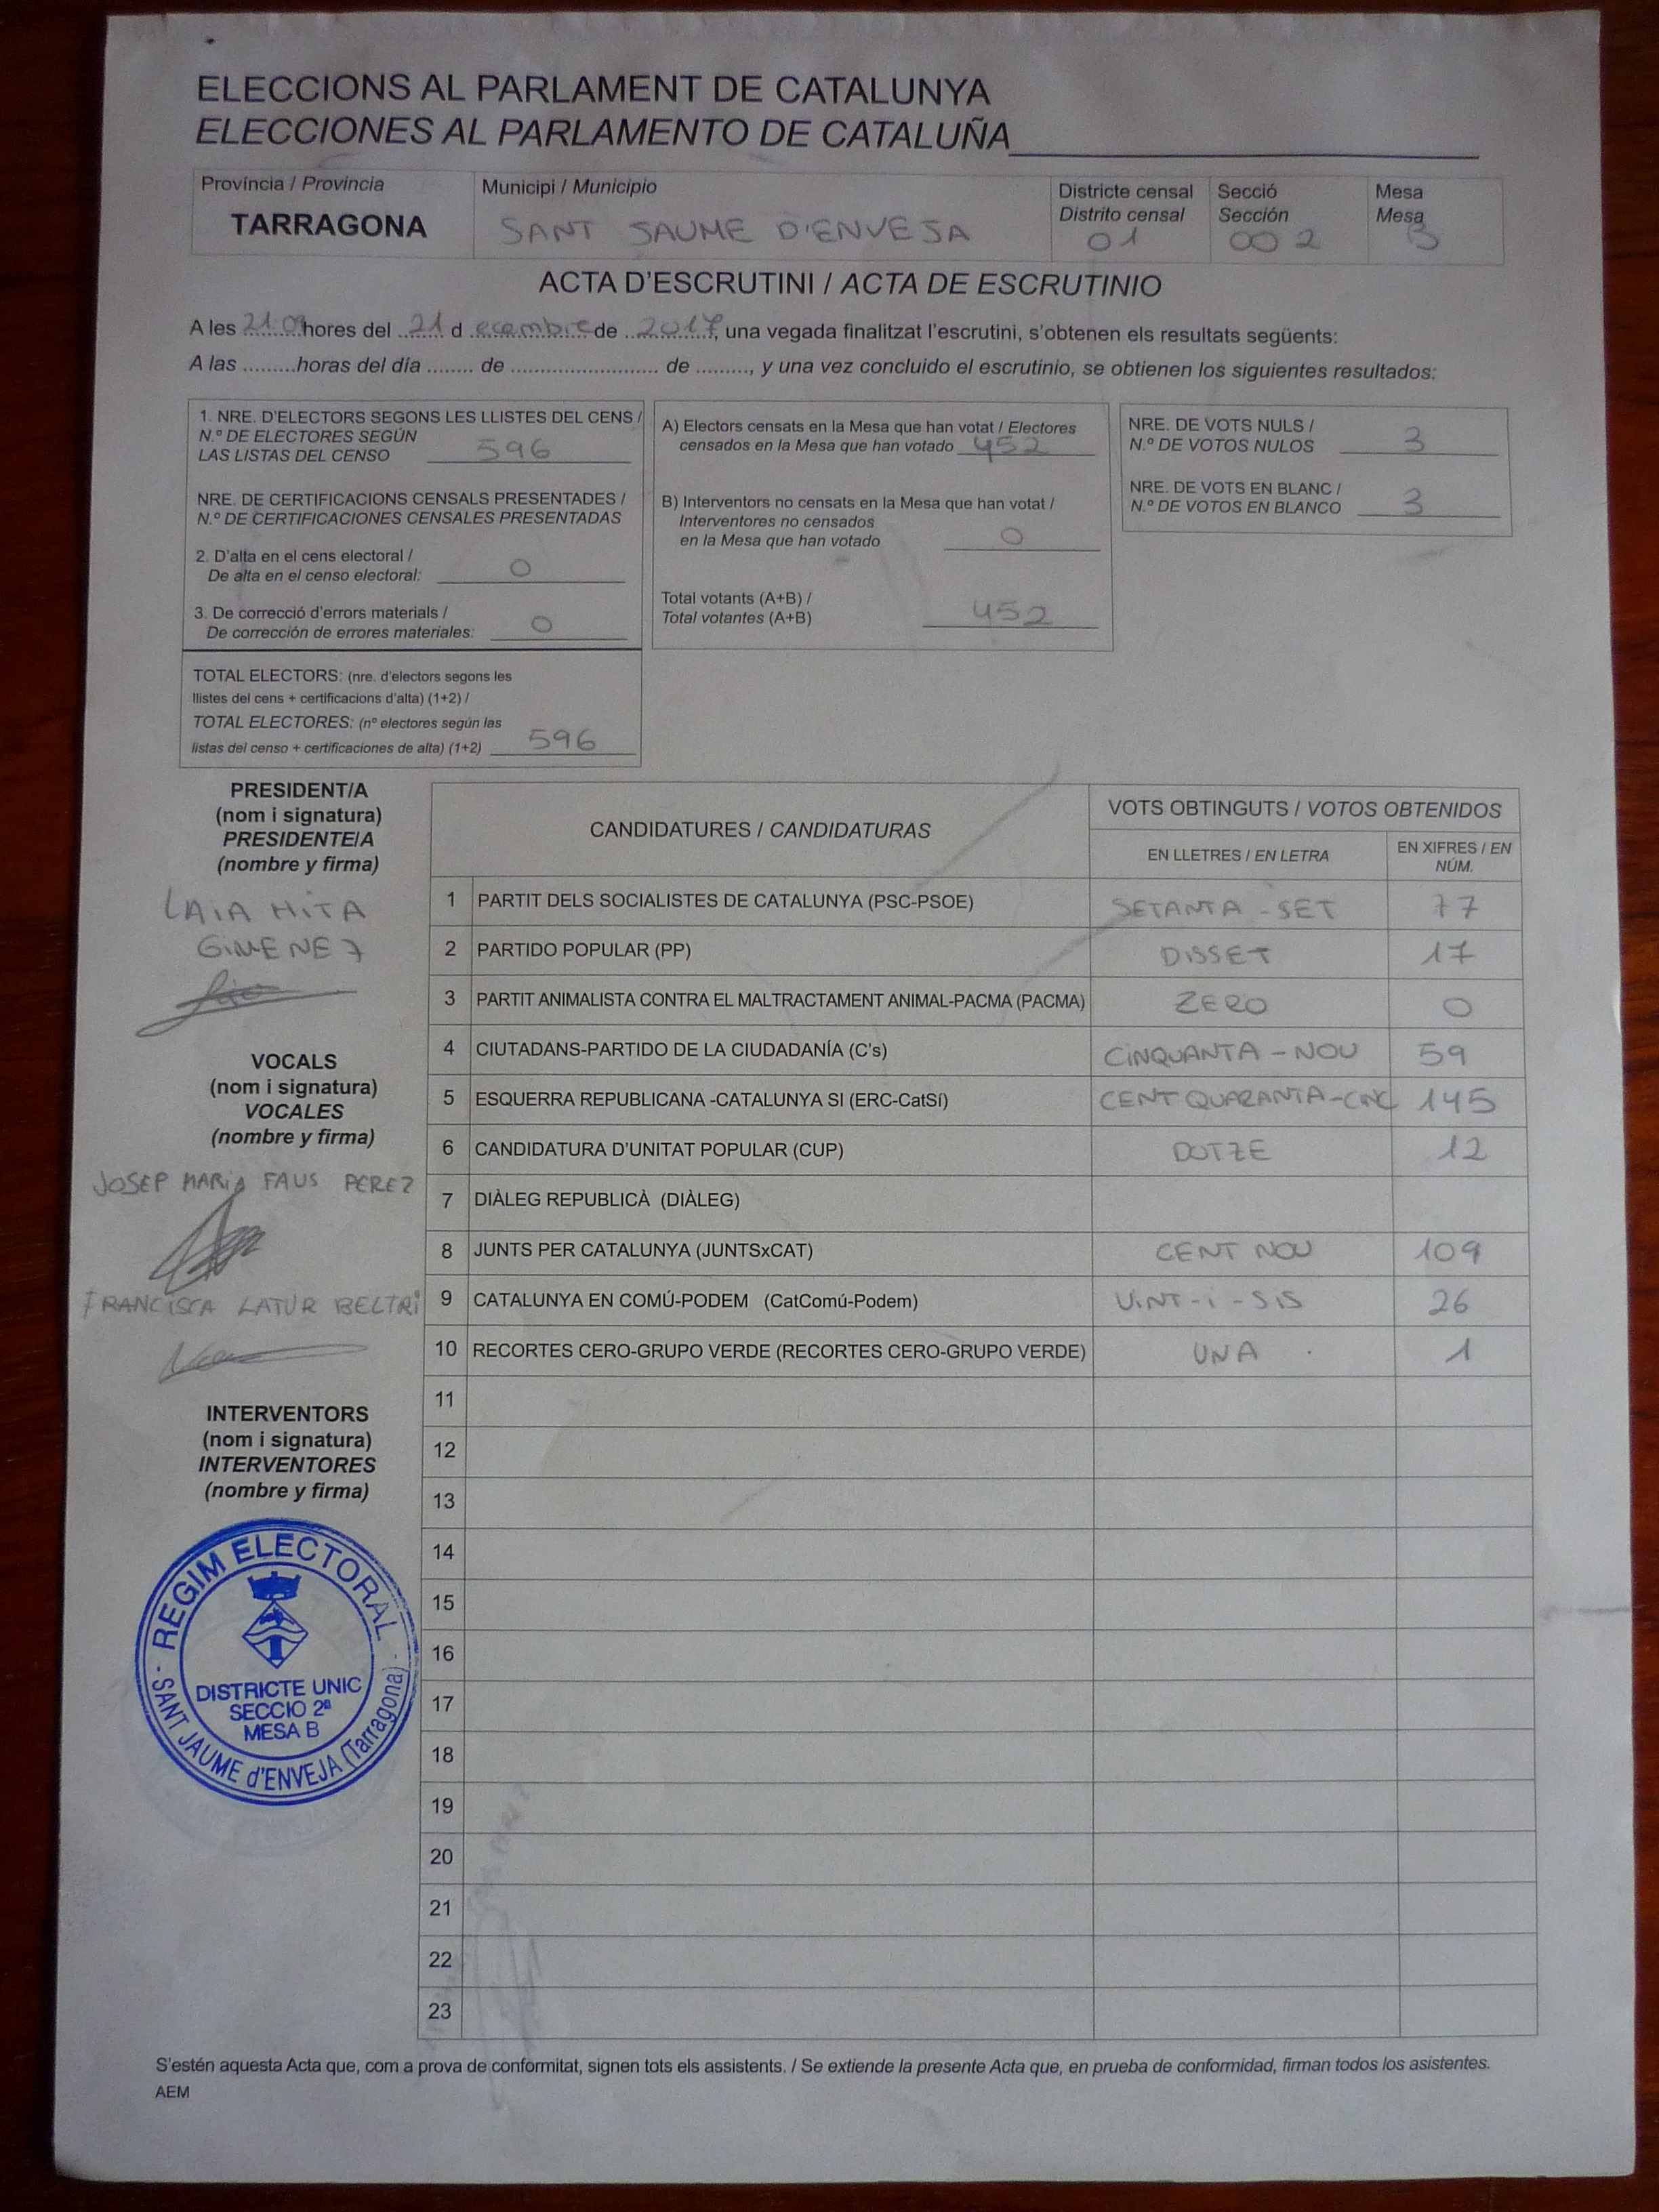 ELECCIONS AL PARLAMENT DE CATALUNYA
ELECCIONES AL PARLAMENTO DE CATALUÑA
Província / Provincia
TARRAGONA
Municipi / Municipio
SANT JAUME D'ENVEJA
Districte censal
Distrito censal
01
Secció
Sección
002
Mesa
Mesa
B
ACTA D'ESCRUTINI / ACTA DE ESCRUTINIO
A les 21:09 hores del 21 d ecembre de 2017, una vegada finalitzat l'escrutini, s'obtenen els resultats següents:
A las .........horas del día ........ de .......................... de ........., y una vez concluido el escrutinio, se obtienen los siguientes resultados:
1. NRE. D'ELECTORS SEGONS LES LLISTES DEL CENS /
N.º DE ELECTORES SEGÚN
LAS LISTAS DEL CENSO 596
NRE. DE CERTIFICACIONS CENSALS PRESENTADES /
N.º DE CERTIFICACIONES CENSALES PRESENTADAS
2. D'alta en el cens electoral /
De alta en el censo electoral: 0
3. De correcció d'errors materials /
De corrección de errores materiales: 0
TOTAL ELECTORS: (nre. d'electors segons les
llistes del cens + certificacions d'alta) (1+2) /
TOTAL ELECTORES: (nº electores según las
listas del censo + certificaciones de alta) (1+2) 596
A) Electors censats en la Mesa que han votat / Electores
censados en la Mesa que han votado 452
B) Interventors no censats en la Mesa que han votat /
Interventores no censados
en la Mesa que han votado 0
Total votants (A+B) /
Total votantes (A+B) 452
NRE. DE VOTS NULS /
N.º DE VOTOS NULOS 3
NRE. DE VOTS EN BLANC /
N.º DE VOTOS EN BLANCO 3
PRESIDENT/A
(nom i signatura)
PRESIDENTE/A
(nombre y firma)
LAIA MITA
GIMENEZ
VOCALS
(nom i signatura)
VOCALES
(nombre y firma)
JOSEP MARIA FAUS PEREZ
FRANCISCA LATUR BELTRI
INTERVENTORS
(nom i signatura)
INTERVENTORES
(nombre y firma)
REGIM ELECTORAL
DISTRICTE UNIC
SECCIO 2ª
MESA B
SANT JAUME d'ENVEJA (Tarragona)
CANDIDATURES / CANDIDATURAS
VOTS OBTINGUTS / VOTOS OBTENIDOS
EN LLETRES / EN LETRA
EN XIFRES / EN
NÚM.
1 PARTIT DELS SOCIALISTES DE CATALUNYA (PSC-PSOE) SETANTA - SET 77
2 PARTIDO POPULAR (PP) DISSET 17
3 PARTIT ANIMALISTA CONTRA EL MALTRACTAMENT ANIMAL-PACMA (PACMA) ZERO 0
4 CIUTADANS-PARTIDO DE LA CIUDADANÍA (C's) CINQUANTA - NOU 59
5 ESQUERRA REPUBLICANA -CATALUNYA SI (ERC-CatSí) CENT QUARANTA-CINC 145
6 CANDIDATURA D'UNITAT POPULAR (CUP) DOTZE 12
7 DIÀLEG REPUBLICÀ (DIÀLEG)
8 JUNTS PER CATALUNYA (JUNTSxCAT) CENT NOU 109
9 CATALUNYA EN COMÚ-PODEM (CatComú-Podem) VINT-I-SIS 26
10 RECORTES CERO-GRUPO VERDE (RECORTES CERO-GRUPO VERDE) UNA 1
11
12
13
14
15
16
17
18
19
20
21
22
23
S'estén aquesta Acta que, com a prova de conformitat, signen tots els assistents. / Se extiende la presente Acta que, en prueba de conformidad, firman todos los asistentes.
AEM